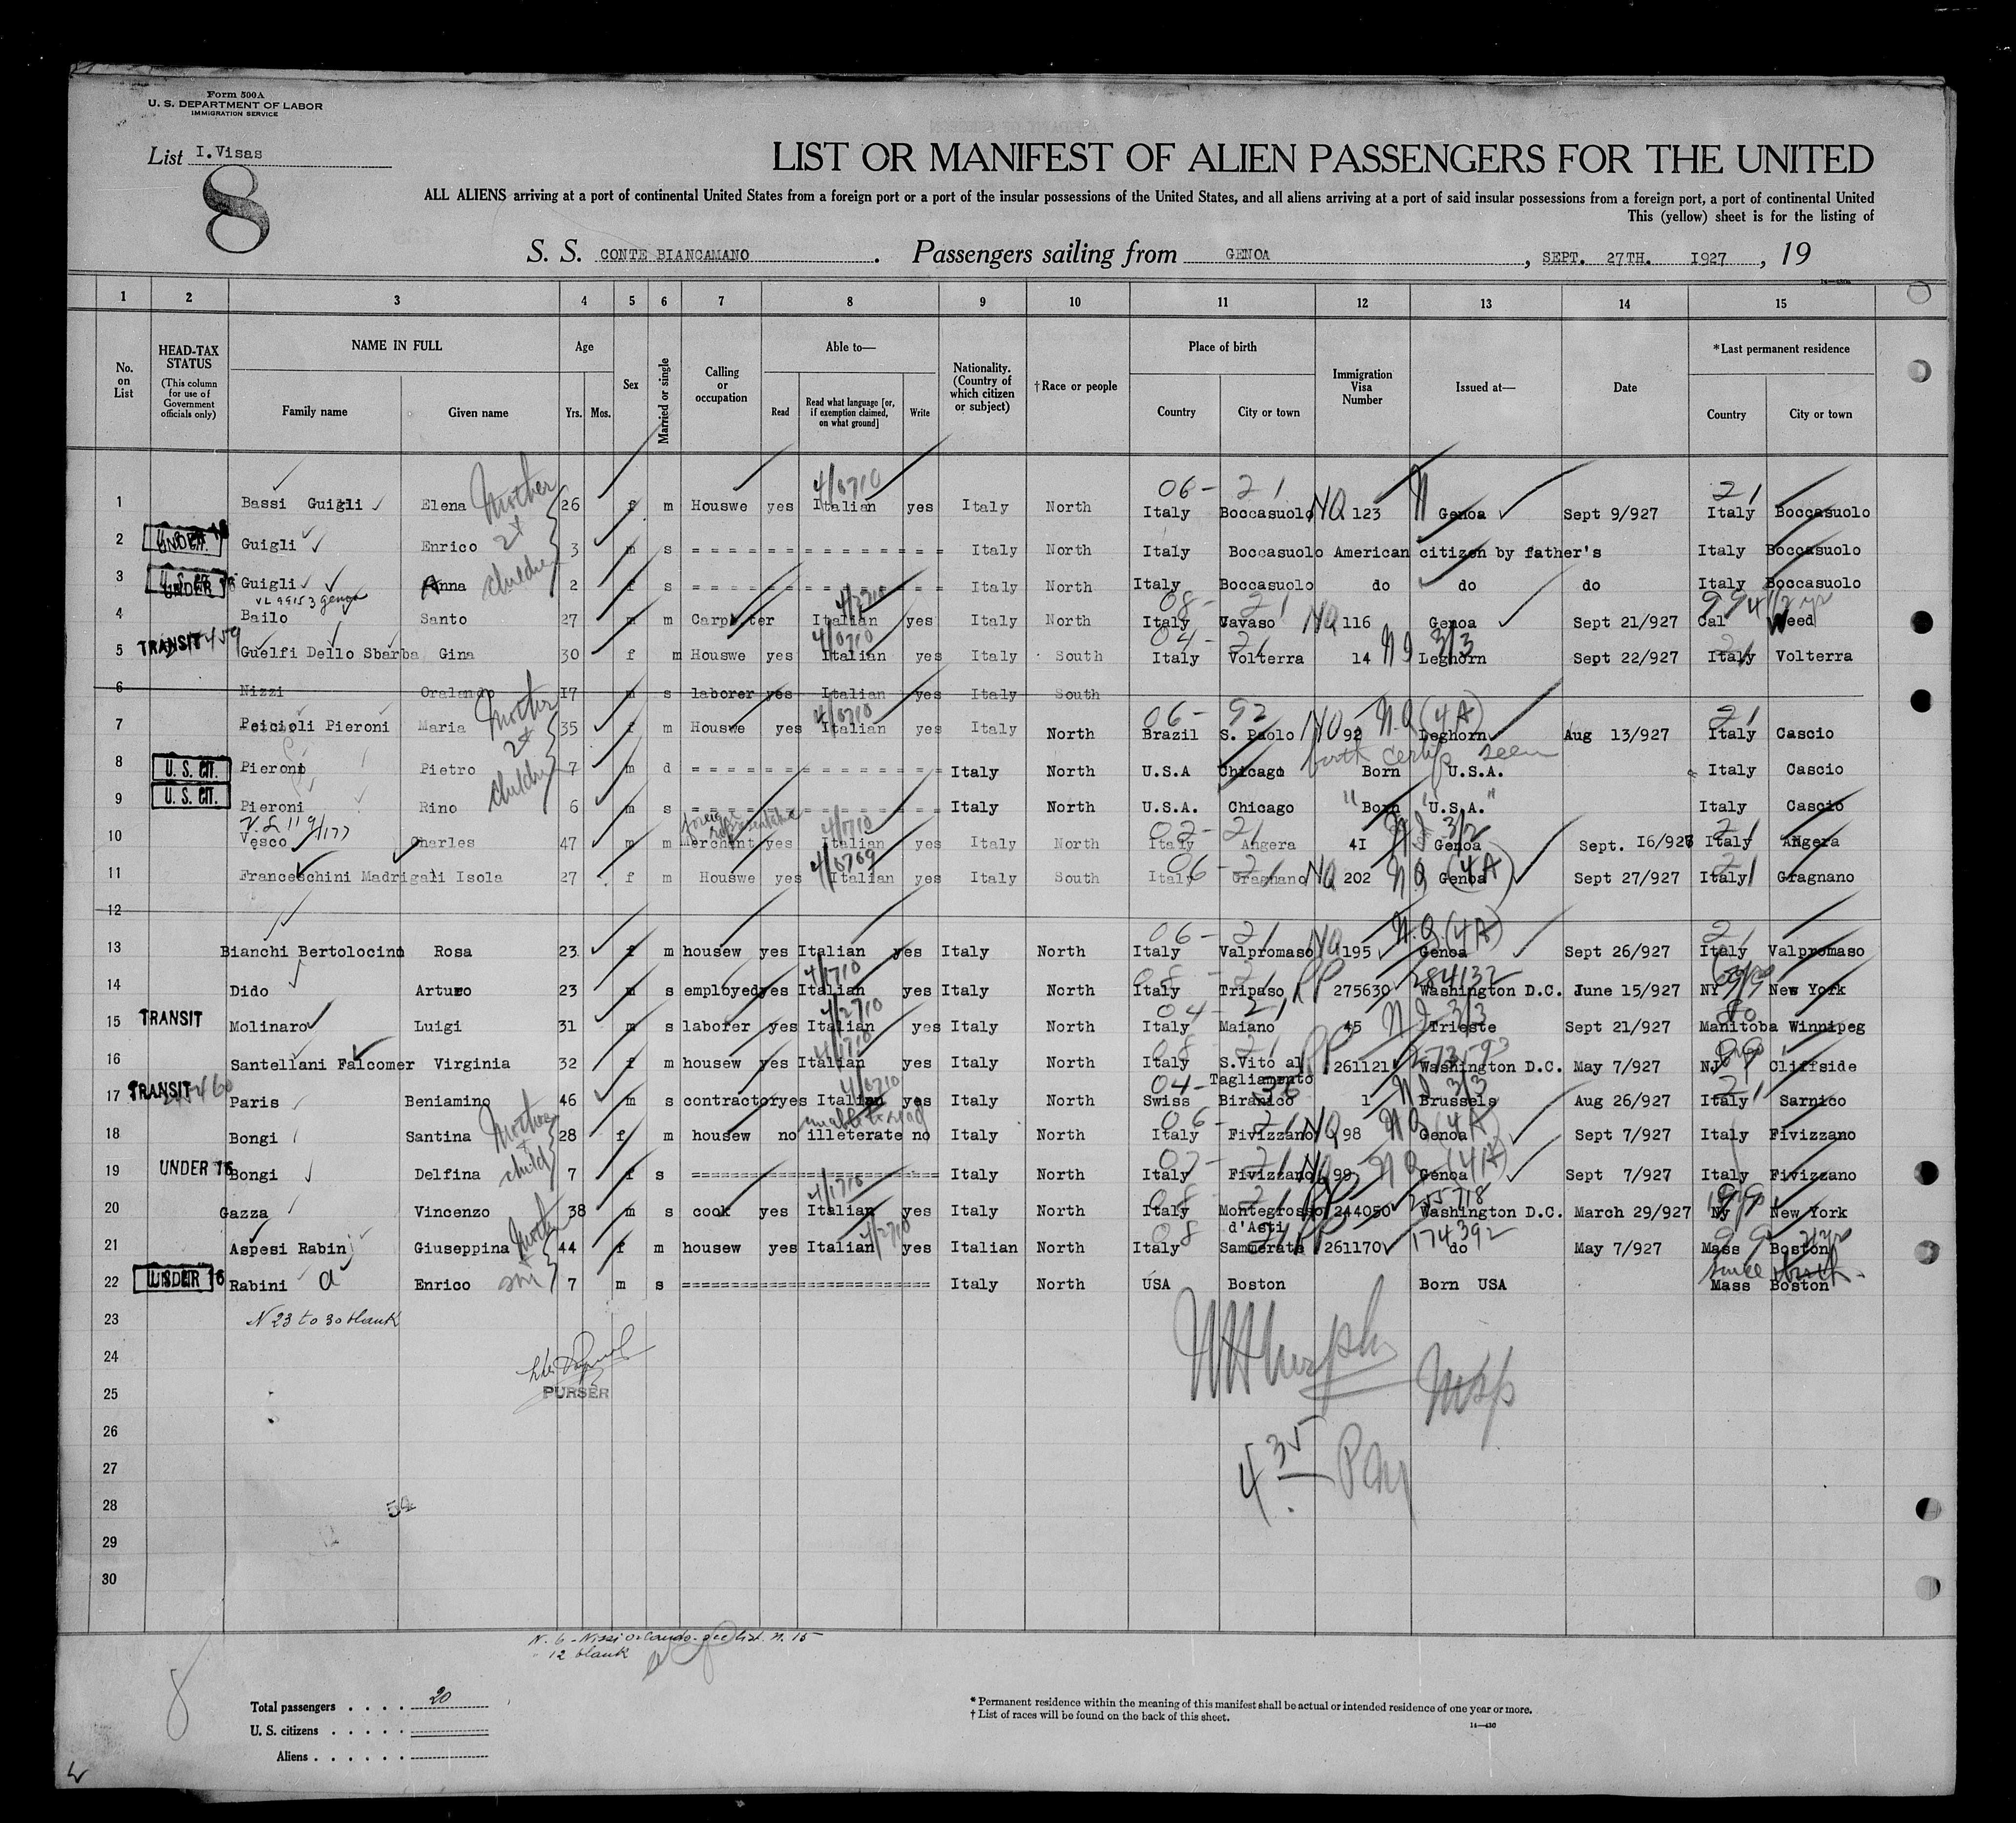 Form 500A
U. S. DEPARTMENT OF LABOR
IMMIGRATION SERVICE
List I.Visas
8
LIST OR MANIFEST OF ALIEN PASSENGERS FOR THE UNITED
ALL ALIENS arriving at a port of continental United States from a foreign port or a port of the insular possessions of the United States, and all aliens arriving at a port of said insular possessions from a foreign port, a port of continental United
This (yellow) sheet is for the listing of
S. S. CONTE BIANCAMANO . Passengers sailing from GENOA , SEPT. 27TH. 1927 , 19
1 2 3 4 5 6 7 8 9 10 11 12 13 14 15
No. on List
HEAD-TAX STATUS (This column for use of Government officials only)
NAME IN FULL
Family name Given name
Age
Yrs. Mos.
Sex
Married or single
Calling or occupation
Able to—
Read Read what language [or, if exemption claimed, on what ground] Write
Nationality. (Country of which citizen or subject)
†Race or people
Place of birth
Country City or town
Immigration Visa Number
Issued at—
Date
*Last permanent residence
Country City or town
4/0710 06 - 21 21
1 Bassi Guigli Elena Mother 26 f m Houswe yes Italian yes Italy North Italy Boccasuolo NQ 123 Genoa Sept 9/927 Italy Boccasuolo
2 Guigli Enrico 2 3 m s Italy North Italy Boccasuolo American citizen by father's Italy Boccasuolo
3 UNDER 16 Guigli Anna children 2 f s Italy North Italy Boccasuolo do do do Italy Boccasuolo
4/2710 08 - 21
4 Bailo Santo 27 m m Carpenter Italian yes Italy North Italy Vavaso NQ 116 Genoa Sept 21/927 Cal Weed
4/0710 04 - 21 3/3
5 TRANSIT Guelfi Dello Sbarba Gina 30 f m Houswe yes Italian yes Italy South Italy Volterra 14 Leghorn Sept 22/927 Italy Volterra
6 Nizzi Oralando 17 m s laborer yes Italian yes Italy South
4/0710 06 - 92 N.Q (4A) 21
7 Peicioli Pieroni Maria Mother 35 f m Houswe yes Italian yes Italy North Brazil S. Paolo 92 Leghorn Aug 13/927 Italy Cascio
birth certif seen
8 U. S. CIT. Pieroni Pietro 7 m d Italy North U.S.A Chicago Born U.S.A. Italy Cascio
9 U. S. CIT. Pieroni Rino children 6 m s Italy North U.S.A. Chicago "Born "U.S.A." Italy Cascio
foreign representative 02 - 21 3/2 21
10 Vesco Charles 47 m m Merchant yes Italian yes Italy North Italy Angera 4I Genoa Sept. I6/927 Italy Angera
4/0709 06 - 21 N.Q (4A) 21
11 Franceschini Madrigali Isola 27 f m Houswe yes Italian yes Italy South Italy Gragnano NQ 202 Genoa Sept 27/927 Italy Gragnano
12
06 - 21 N.Q.(4A) 21
13 Bianchi Bertolocind Rosa 23 f m housew yes Italian yes Italy North Italy Valpromaso NQ 195 Genoa Sept 26/927 Italy Valpromaso
4/1710 08 - 21 284132
14 Dido Arturo 23 m s employed yes Italian yes Italy North Italy Tripaso PP 275630 Washington D.C. June 15/927 NY New York
4/2710 04 - 21 3/3 80
15 TRANSIT Molinaro Luigi 31 m s laborer yes Italian yes Italy North Italy Maiano 45 Trieste Sept 21/927 Manitoba Winnipeg
4/1710 08 - 21
16 Santellani Falcomer Virginia 32 f m housew yes Italian yes Italy North Italy S.Vito al PP 261121 Washington D.C. May 7/927 NJ Cliffside
Tagliamento
4/0710 04 - 36 3/3 21
17 TRANSIT Paris Beniamino 46 m s contractor yes Italian yes Italy North Swiss Biranico 1 Brussels Aug 26/927 Italy Sarnico
unable to read 06 - 21 N.Q (4A)
18 Bongi Santina Mother 28 f m housew no illeterate no Italy North Italy Fivizzano NQ 98 Genoa Sept 7/927 Italy Fivizzano
19 UNDER 16 Bongi Delfina child 7 f s Italy North Italy Fivizzano NQ 99 Genoa Sept 7/927 Italy Fivizzano
4/1710 08 - 21 255718
20 Gazza Vincenzo 38 m s cook yes Italian yes Italy North Italy Montegrosso PP 244050 Washington D.C. March 29/927 Ny New York
d'Asti
4/2710 08 21 174392
21 Aspesi Rabinj Giuseppina Mother 44 f m housew yes Italian yes Italian North Italy Sammerata PP 261170 do May 7/927 Mass Boston
since birth
22 UNDER 16 Rabini Enrico son 7 m s Italy North USA Boston Born USA Mass Boston
23 N 23 to 30 blank
24
25 PURSER
26
27
28
29
30
4 35
N. 6 - Nizzi Orlando - see list. n. 15
" 12 blank
8
Total passengers . . . . 20
U. S. citizens . . . . .
Aliens . . . . . .
* Permanent residence within the meaning of this manifest shall be actual or intended residence of one year or more.
† List of races will be found on the back of this sheet.
14—430